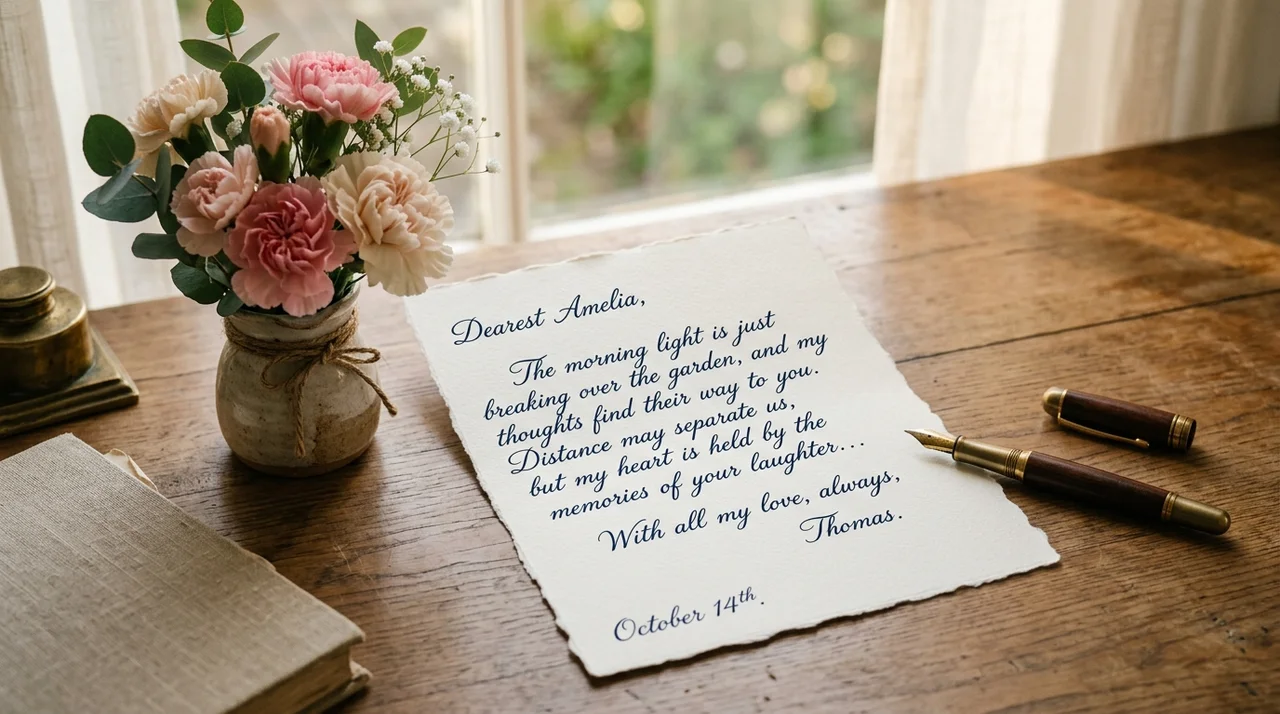 Dearest Amelia,
The morning light is just
breaking over the garden, and my
thoughts find their way to you.
Distance may separate us,
but my heart is held by the
memories of your laughter...
With all my love, always,
Thomas.
October 14th.